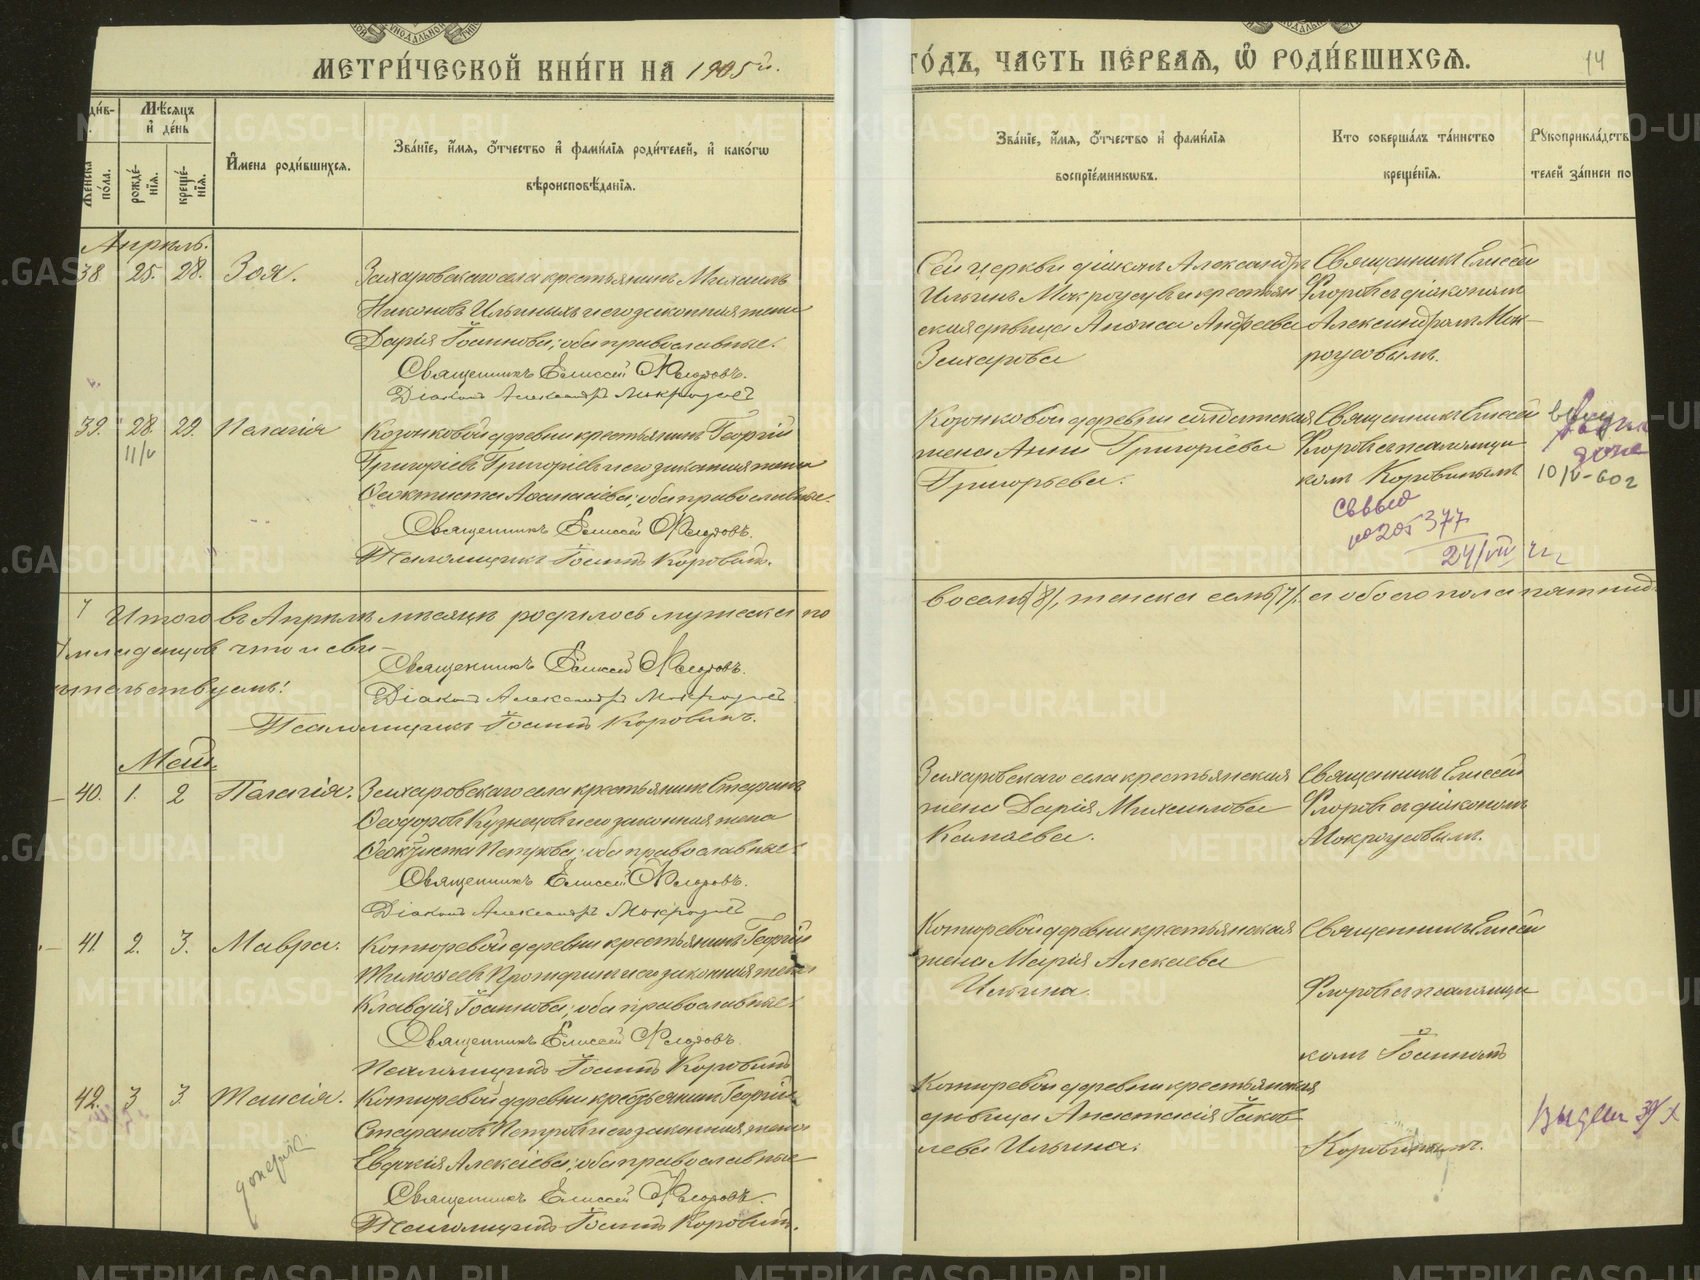 МЕТРИ́ЧЕСКОЙ КНИ́ГИ НА 1905й.
ГО́ДЪ, ЧАСТЬ ПЕ́РВАѦ, Ѽ РОДИ́ВШИХСѦ.
14
Мѣсяцъ и де́нь
Же́нска по́ла.
рожде́нія.
креще́нія.
И҆мена роди́вшихся.
Зва́ніе, и҆́мя, о҆́тчество и҆ фами́лія роди́телей, и҆ како́гѡ
вѣроисповѣ́данія.
Зва́ніе, и҆́мя, о҆́тчество и҆ фами́лія
воспріе́мниковъ.
Кто соверша́лъ та́инство
креще́нія.
Рукоприкла́дств
телей за́писи по
Апрѣль.
38 25. 28. Зоя.
Захаровскаго села крестьянинъ Михаилъ
Никоновъ Ильиныхъ и его законная жена
Дарія Іоаннова, оба православные.
Священникъ Елисей Флоровъ.
Діаконъ Александръ Мокроусовъ
Сей церкви діаконъ Александръ
Ильинъ Мокроусовъ и крестьян
ская дѣвица Анѳиса Андреева
Захарова
Священникъ Елисей
Флоровъ съ діакономъ
Александромъ Мок-
роусовымъ.
39. 28. 29. Пелагія
11/V
Козонковой деревни крестьянинъ Георгій
Григоріевъ Григоріевъ и его законная жена
Ѳеоктиста Аѳанасіева, оба православные.
Священникъ Елисей Флоровъ.
Псаломщикъ Іоаннъ Коровинъ.
Козонковой деревни солдатская
жена Анна Григоріева
Григорьева.
Священникъ Елисей
Флоровъ съ псаломщи
комъ Коровинымъ
10/V-60г
377
24/VII
Итого въ Апрѣлѣ мѣсяцѣ родилось мужеска по
восемь /8/, женска семь /7/, а обоего пола пятнад
младенцовъ что и сви-
дѣтельствуемъ:
Священникъ Елисей Флоровъ.
Діаконъ Александръ Мокроусовъ
Псаломщикъ Іоаннъ Коровинъ.
Май.
40. 1. 2 Пелагія.
Захаровскаго села крестьянинъ Стефанъ
Ѳеодоровъ Кузнецовъ и его законная жена
Ѳеоктиста Петрова, оба православные.
Священникъ Елисей Флоровъ.
Діаконъ Александръ Мокроусовъ
Захаровскаго села крестьянская
жена Дарія Михаилова
Камаева.
Священникъ Елисей
Флоровъ съ діакономъ
Мокроусовымъ.
41. 2. 3. Мавра.
Котюревой деревни крестьянинъ Георгій
Тимоѳеевъ и его законная жена
Клавдія Іоаннова, оба православные.
Священникъ Елисей Флоровъ.
Псаломщикъ Іоаннъ Коровинъ
Котюревой деревни крестьянская
жена Марія Алексаева
Ильина.
Священникъ Елисей
Флоровъ съ псаломщи
комъ Іоанномъ
Коровинымъ.
42. 3 3. Таисія.
Котюревой деревни крестьянинъ Георгій
Стефановъ Петровъ и его законная жена
Евдокія Алексіева, оба православные
Священникъ Елисей Флоровъ.
Псаломщикъ Іоаннъ Коровинъ.
Котюревой деревни крестьянская
дѣвица Анастасія Іаков
лева Ильина.
METRIKI.GASO-URAL.RU